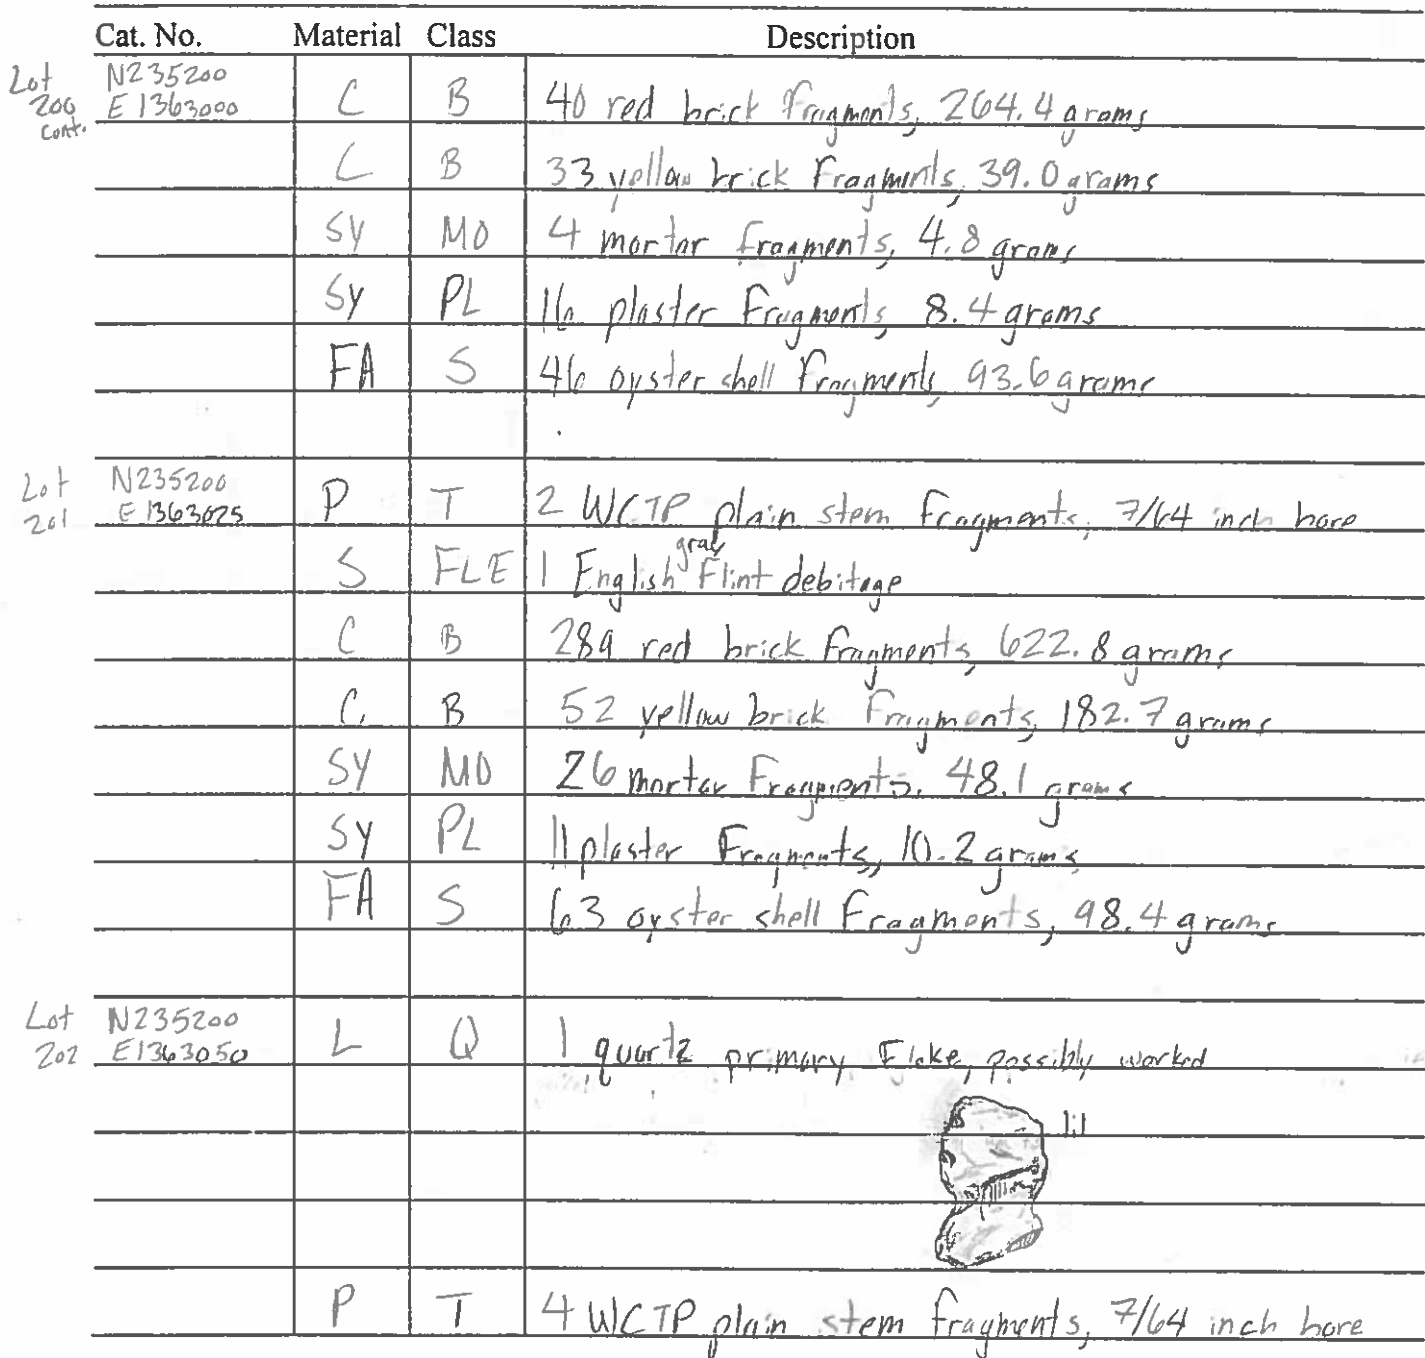 Cat. No. Material Class Description
Lot 200 cont. N235200 E1363000 C B 40 red brick fragments, 264.4 grams
C B 33 yellow brick fragments, 39.0 grams
SY MO 4 mortar fragments, 4.8 grams
SY PL 16 plaster fragments, 8.4 grams
FA S 46 oyster shell fragments, 93.6 grams
Lot 201 N235200 E1363025 P T 2 WCTP plain stem fragments, 7/64 inch bore
S FLE 1 English gray Flint debitage
C B 289 red brick fragments, 622.8 grams
C B 52 yellow brick fragments, 182.7 grams
SY MO 26 mortar Fragments, 48.1 grams
SY PL 11 plaster Fragments, 10.2 grams
FA S 63 oyster shell fragments, 98.4 grams
Lot 202 N235200 E1363050 L Q 1 quartz primary Flake, possibly worked
1:1
P T 4 WCTP plain stem fragments, 7/64 inch bore